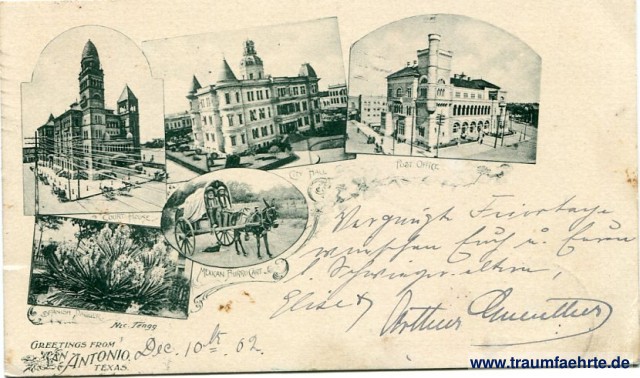 COURT HOUSE.
CITY HALL
POST OFFICE
MEXICAN BURRO CART
SPANISH DAGGER
Nic. Tengg
GREETINGS FROM
SAN ANTONIO,
TEXAS.
Dec. 10th 02.
Vergnügte Feiertage
wünschen Euch u. Euren
Schwiegereltern,
Elise &
Arthur Guenther
www.traumfaehrte.de